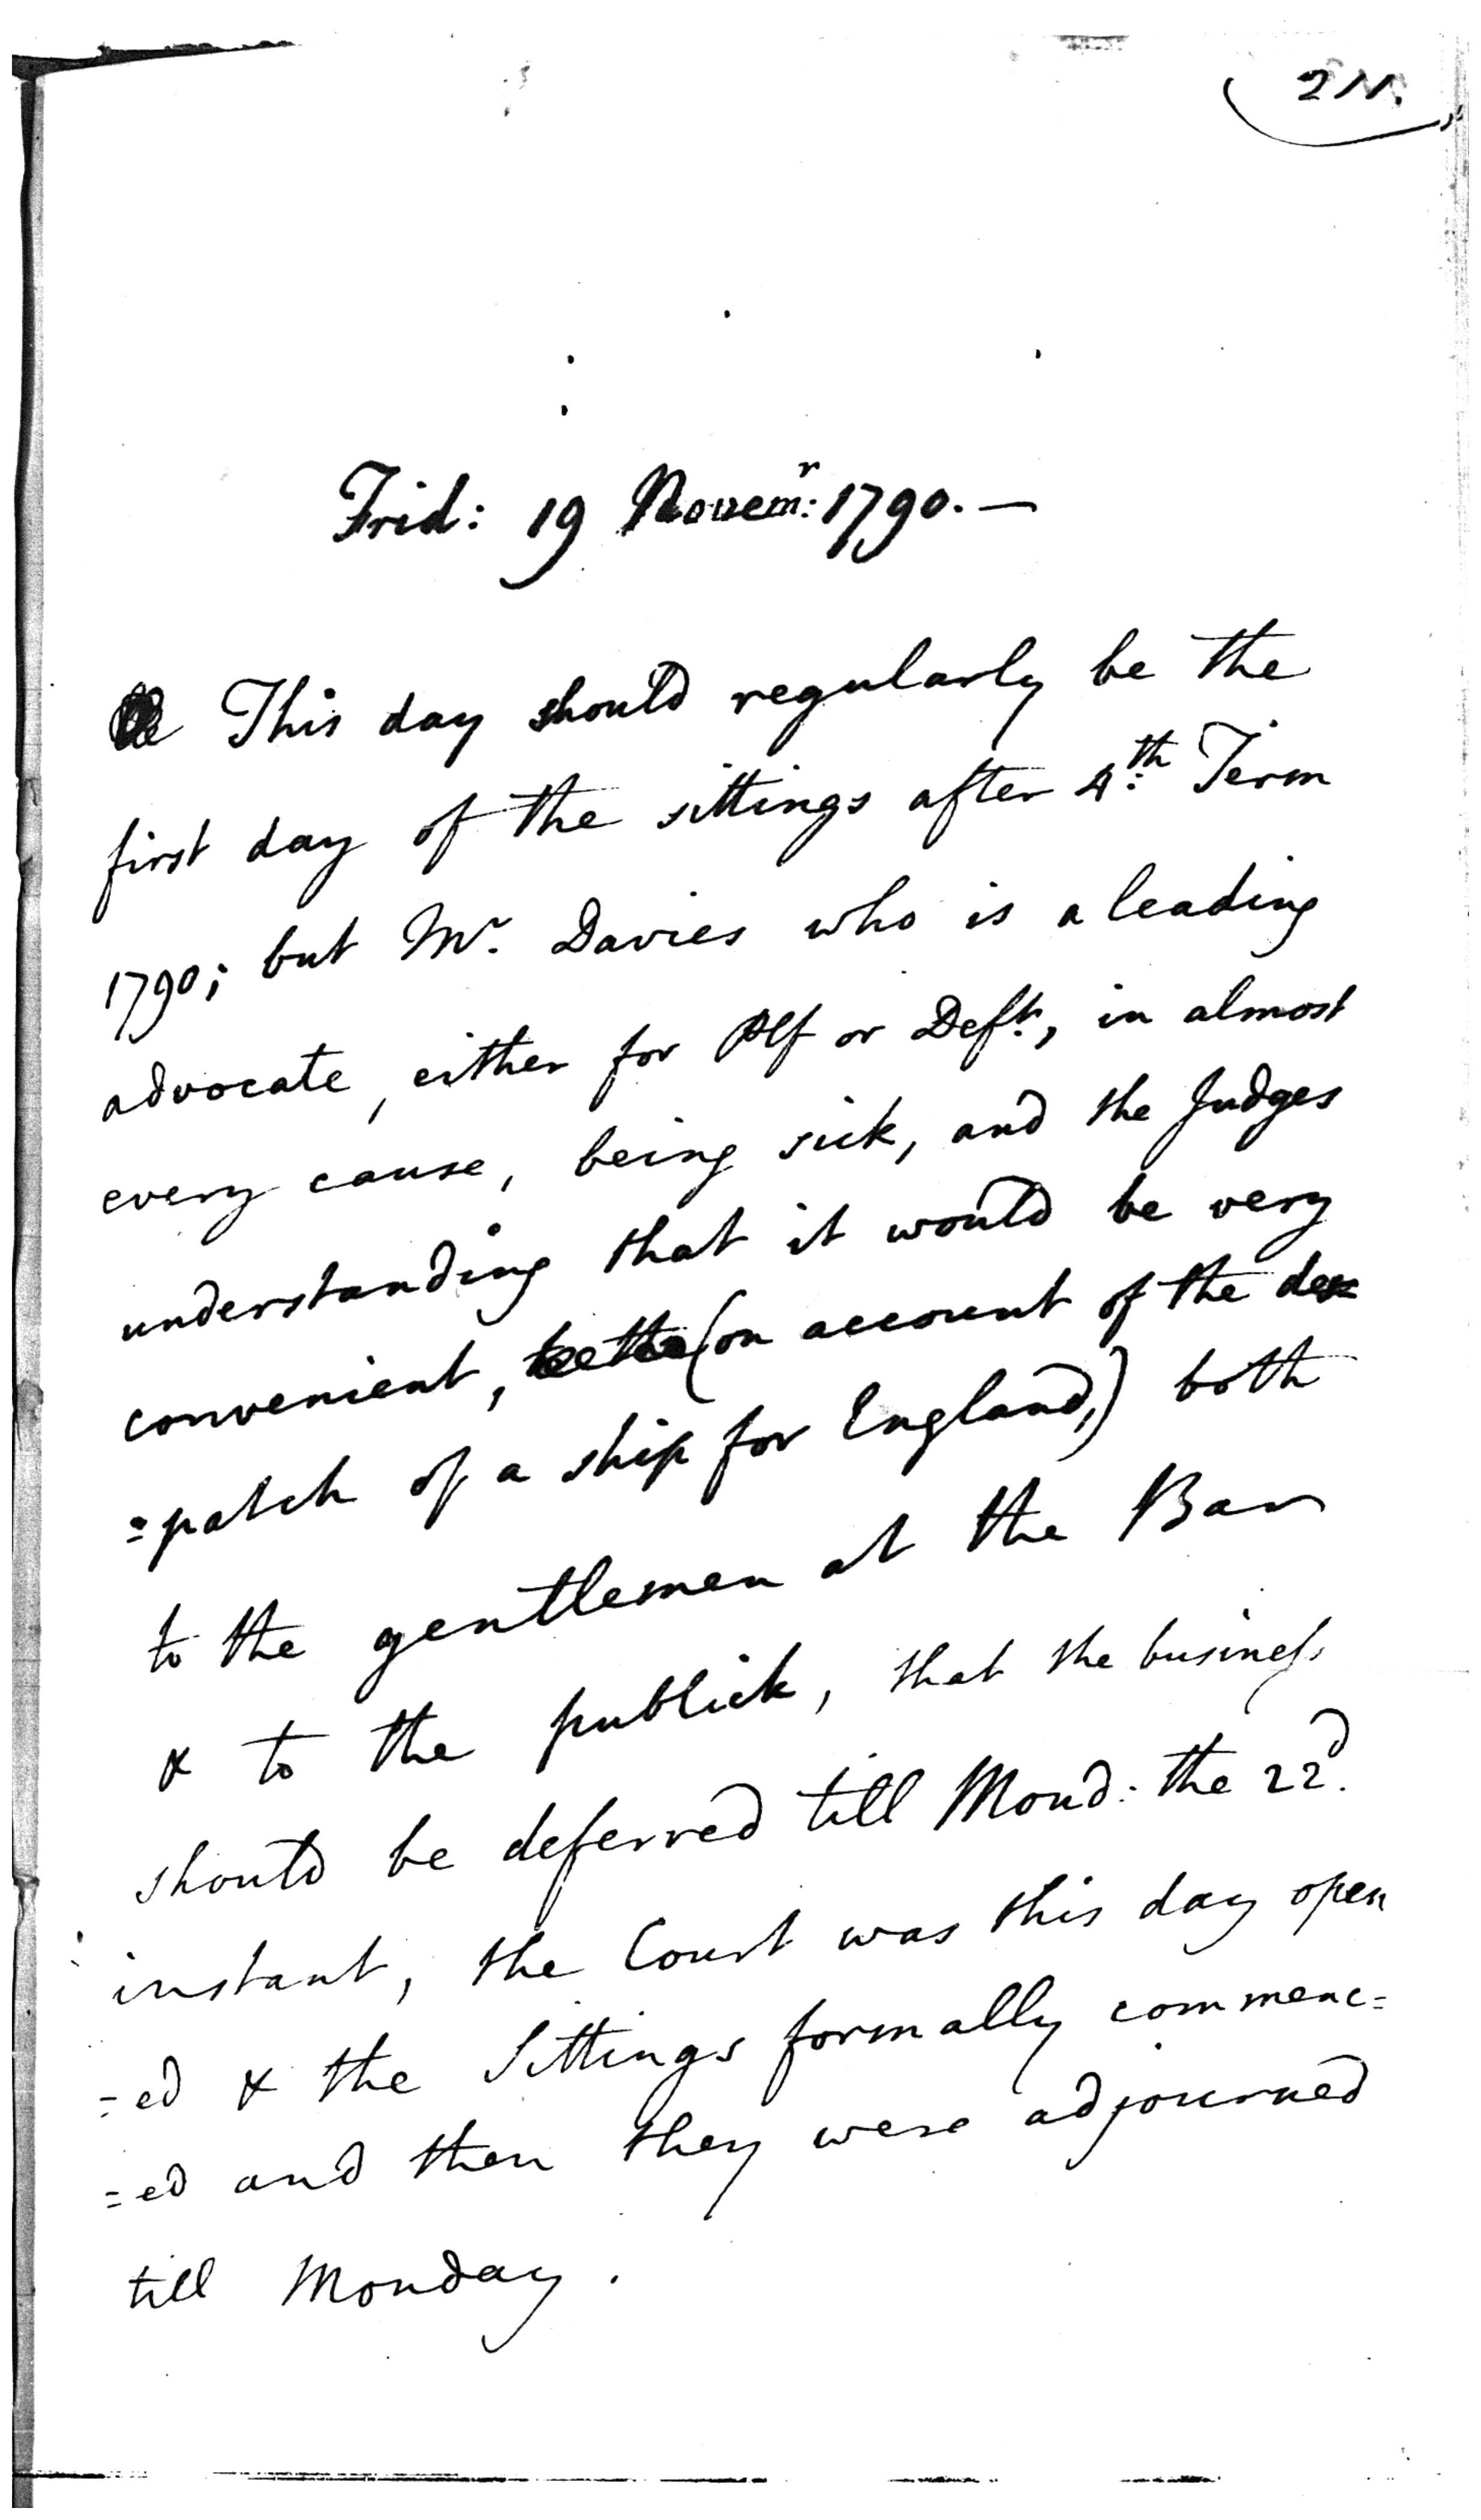 2N.
Frid: 19 Novemr: 1790. —
This day should regularly be the
first day of the sittings after 4th: Term
1790; but Mr. Davies who is a leading
advocate, either for Plf or Deft:, in almost
every cause, being sick, and the Judges
understanding that it would be very
convenient, (on account of the des
=patch of a ship for England,) both
to the gentlemen at the Bar
& to the publick, that the business
should be deferred till Mond: the 22d.
instant, the Court was this day open
=ed & the Sittings formally commenc=
=ed and then they were adjourned
till Monday.